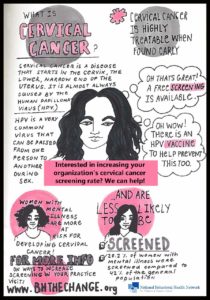 WHAT IS
CERVICAL
CANCER?
CERVICAL CANCER IS A DISEASE
THAT STARTS IN THE CERVIX, THE
LOWER, NARROW END OF THE
UTERUS. IT IS ALMOST ALWAYS
CAUSED BY THE
HUMAN PAPILLOMA
VIRUS (HPV).
HPV IS A VERY
COMMON
VIRUS THAT
CAN BE PASSED
FROM ONE
PERSON TO
ANOTHER
DURING
SEX.
* CERVICAL CANCER
IS HIGHLY
TREATABLE WHEN
FOUND EARLY
OH THAT'S GREAT!
A FREE SCREENING
IS AVAILABLE.
OH WOW!
THERE IS AN
HPV VACCINE
TO HELP PREVENT
THIS TOO.
Interested in increasing your
organization's cervical cancer
screening rate? We can help!
WOMEN WITH
MENTAL
ILLNESS
ARE MORE
AT
RISK FOR
DEVELOPING CERVICAL
CANCER!
AND ARE
LESS LIKELY
TO BE
SCREENED
OF WOMEN WITH
MENTAL ILLNESS WERE
SCREENED COMPARED TO
42% OF THE GENERAL
FOR MORE INFO
ON WAYS TO INCREASE
SCREENING IN YOUR PRACTICE
VISIT:
WWW.BHTHECHANGE.ORG
National Behavioral Health Network